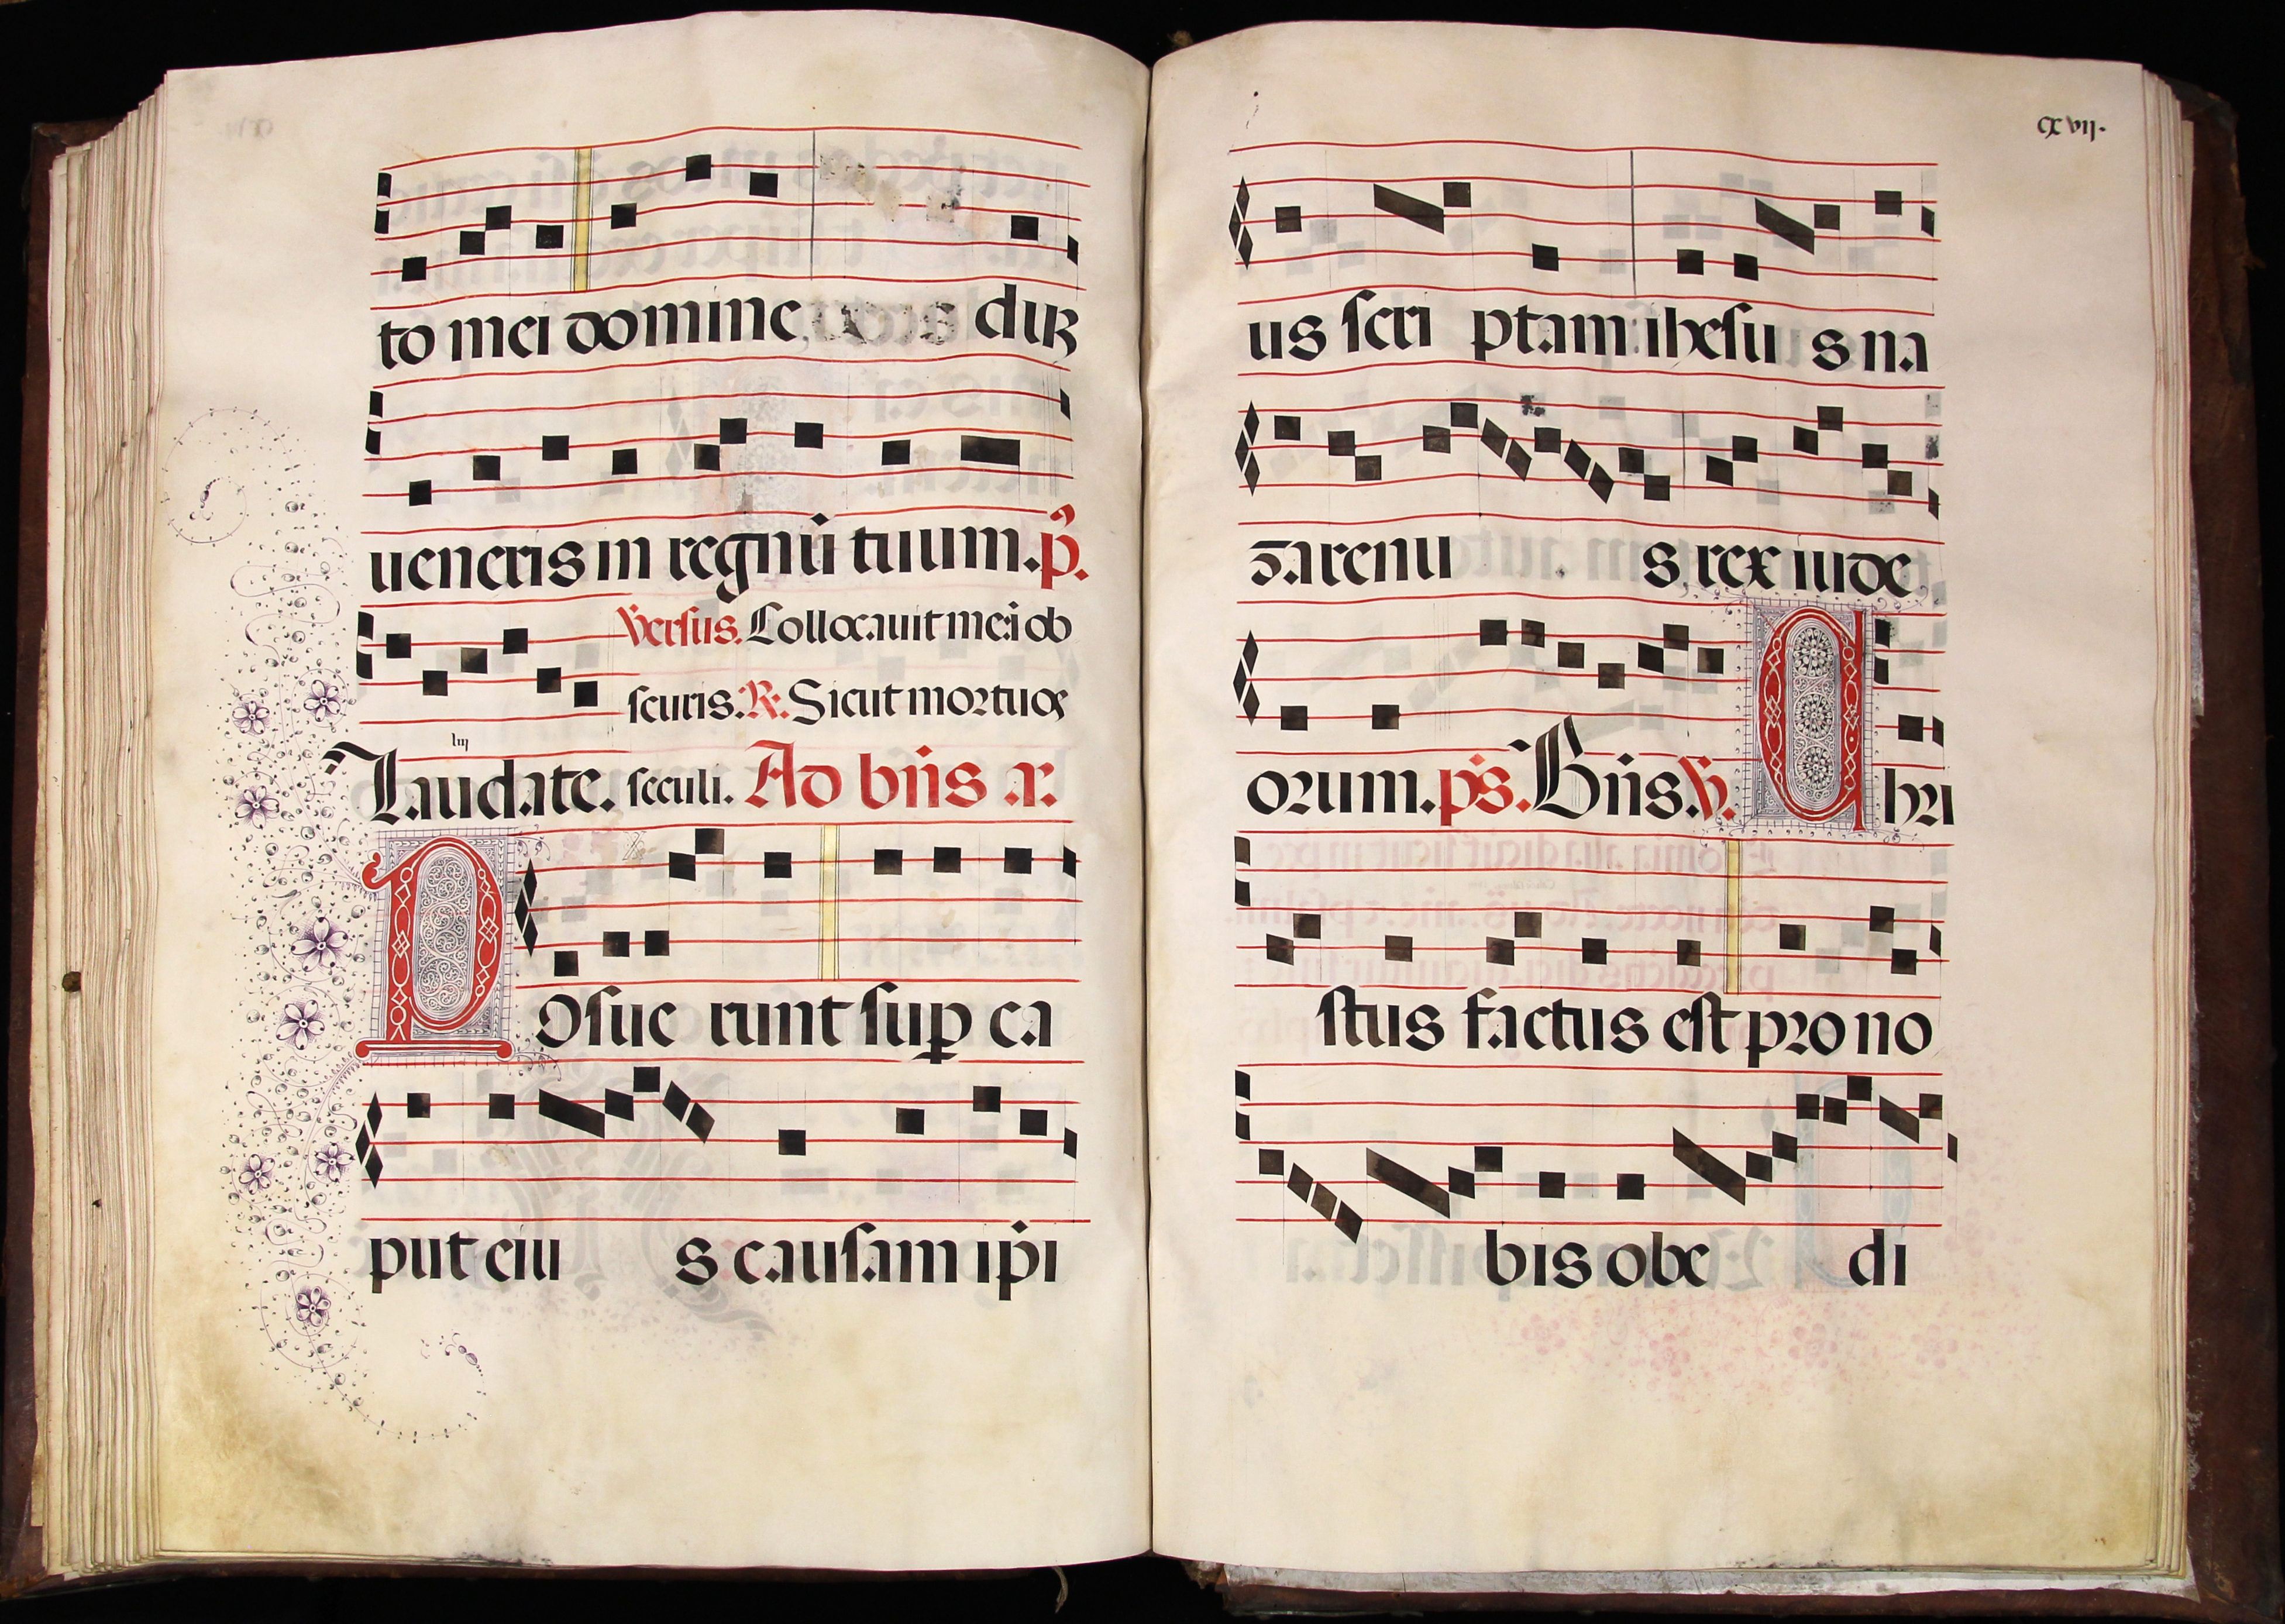 to mei domine dū
ueneris in regnū tuum. p̄.
Versus. Collocauit me i ob
scuris. R. Sicut mortuos
Laudate. seculi. Ad bn̄s a.
Posue runt suꝑ ca
put eiu s causam ip̄i
cxvij.
us scri ptam ihesu s na
zarenu s rex iude
orum. ps. Bn̄s. V. Chri
stus factus est pro no
bis obe di